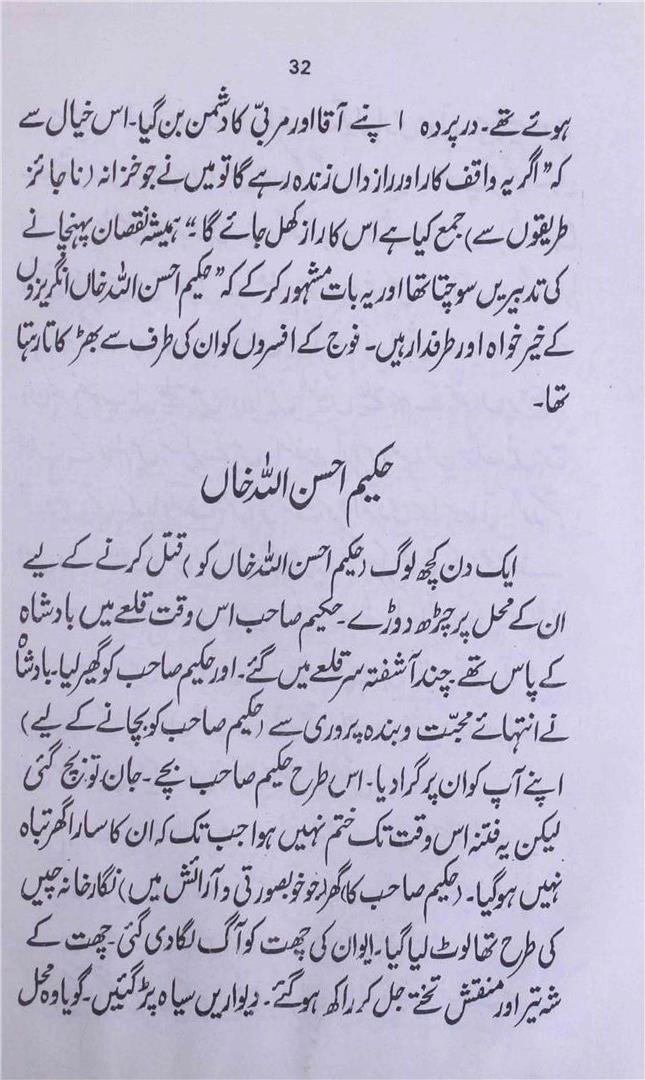 32
ہوئے تھے۔ درپردہ اپنے آقا اور مربیّ کا دشمن بن گیا۔ اس خیال سے
کہ ”اگر یہ واقف کار اور رازداں زندہ رہے گا تو میں نے جو خزانہ (ناجائز
طریقوں سے) جمع کیا ہے اس کا راز کھل جائے گا۔“ ہمیشہ نقصان پہنچانے
کی تدبیریں سوچتا تھا اور یہ بات مشہور کرکے کہ ”حکیم احسن اللہ خاں انگریزوں
کے خیر خواہ اور طرفدار ہیں۔ فوج کے افسروں کو ان کی طرف سے بھڑکاتا رہتا
تھا۔
حکیم احسن اللہ خاں
ایک دن کچھ لوگ (حکیم احسن اللہ خاں کو) قتل کرنے کے لیے
ان کے محل پر چڑھ دوڑے۔ حکیم صاحب اس وقت قلعے میں بادشاہ
کے پاس تھے۔ چند آشفتہ سر قلعے میں گئے۔ اور حکیم صاحب کو گھیر لیا۔ بادشاہ
نے انتہائے محبّت و بندہ پروری سے (حکیم صاحب کو بچانے کے لیے)
اپنے آپ کو ان پر گرا دیا۔ اس طرح حکیم صاحب بچے۔ جان تو بچ گئی
لیکن یہ فتنہ اس وقت تک ختم نہیں ہوا جب تک کہ ان کا سارا گھر تباہ
نہیں ہوگیا۔ (حکیم صاحب کا) گھر (جو خوبصورتی و آرائش میں) نگار خانہ چیں
کی طرح تھا لوٹ لیا گیا۔ ایوان کی چھت کو آگ لگا دی گئی۔ چھت کے
شہ تیر اور منقش تختے جل کر راکھ ہوگئے۔ دیواریں سیاہ پڑ گئیں۔ گویا وہ محل